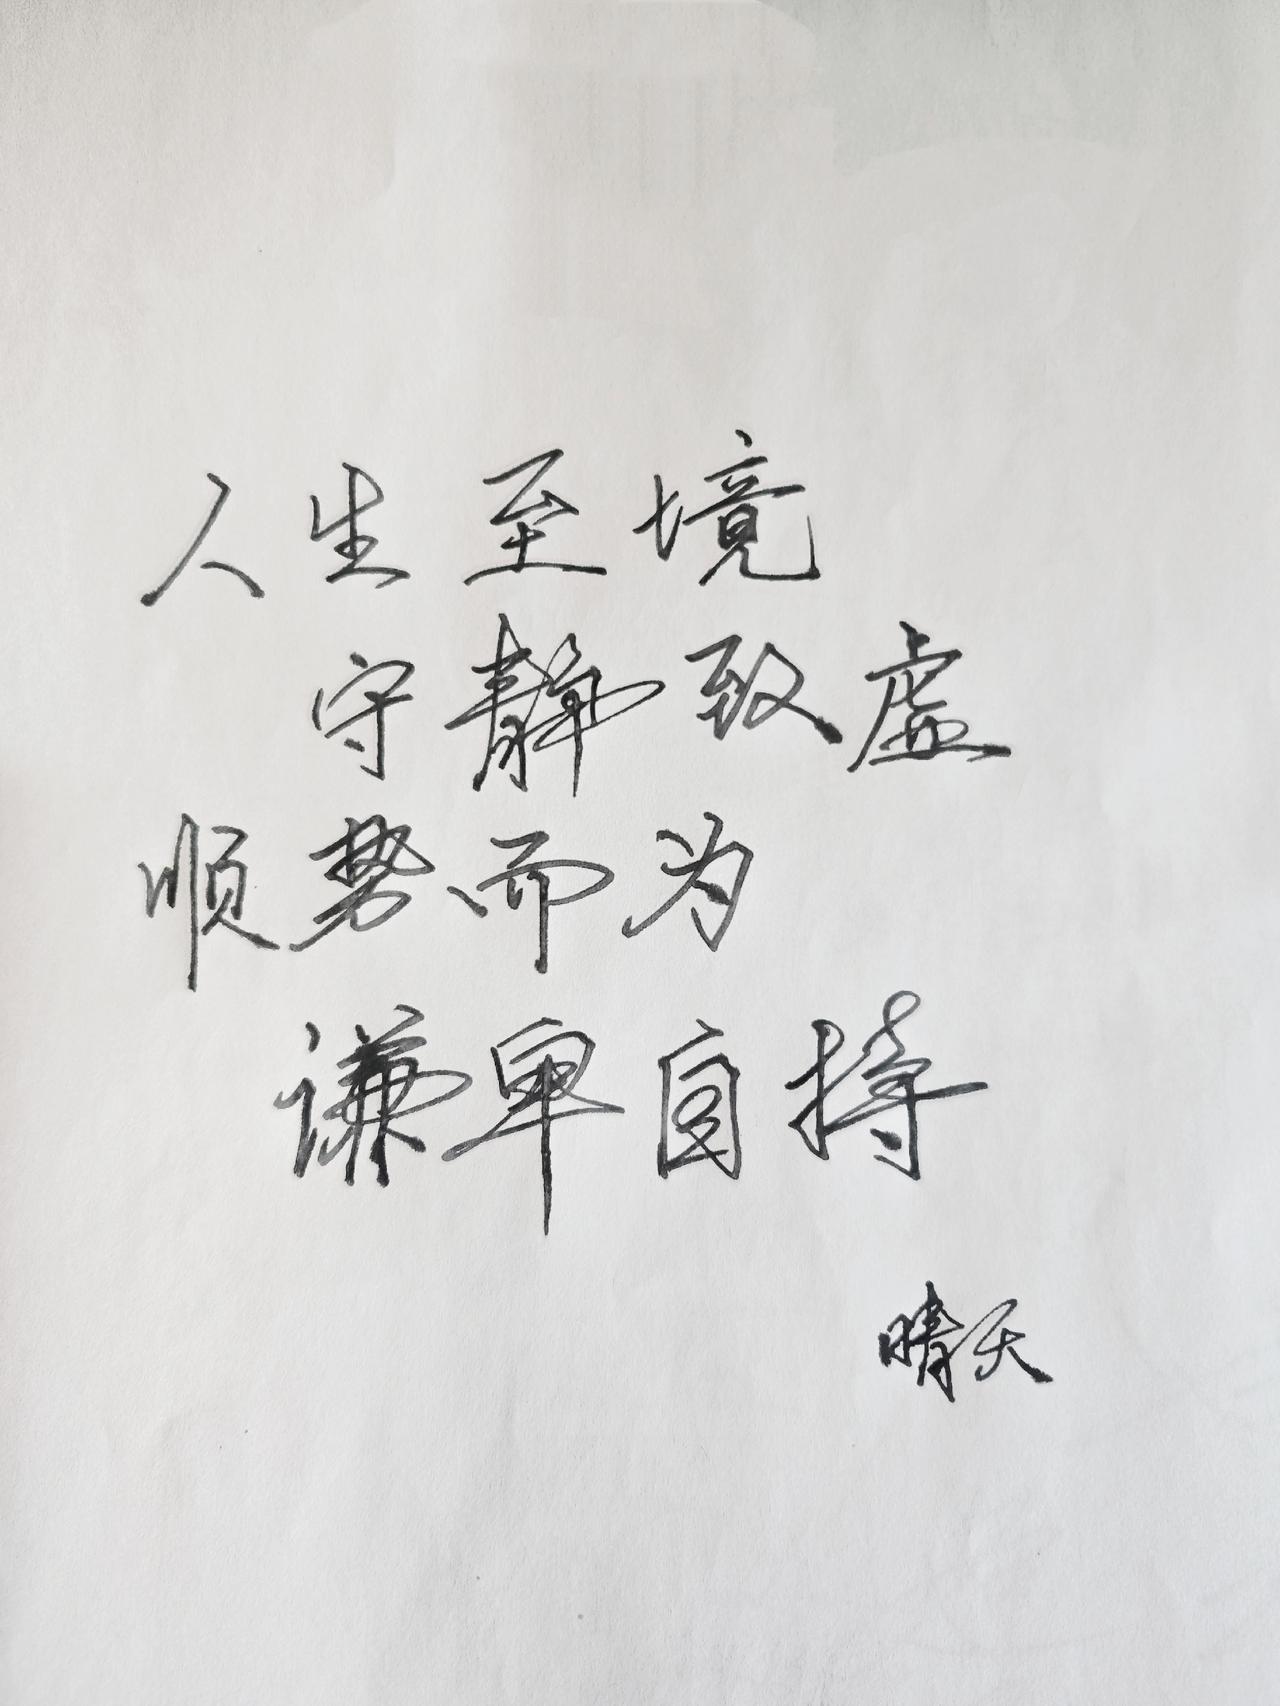 人生至境
守静致虚
顺势而为
谦卑自持
晴天